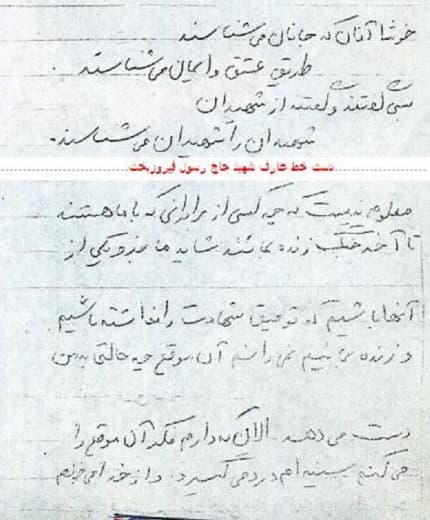 خوشا آنان که جانان می‌شناسند
طریق عشق و ایمان می‌شناسند
بسی گفتند و گفتند از شهیدان
شهیدان را شهیدان می‌شناسند.
دست خط عارف شهید حاج رسول فیروزبخت
معلوم نیست که چه کسی از برادرانی که با ما هستند
تا آخر جنگ زنده بمانند شاید ما جزو یکی از
آنها باشیم که توفیق شهادت را نداشته باشیم
و زنده بمانیم نمی‌دانم آن موقع چه حالتی به من
دست می‌دهد الان که دارم فکر آن موقع را
می‌کنم سینه‌ام درد می‌گیرد و از خدا می‌خواهم